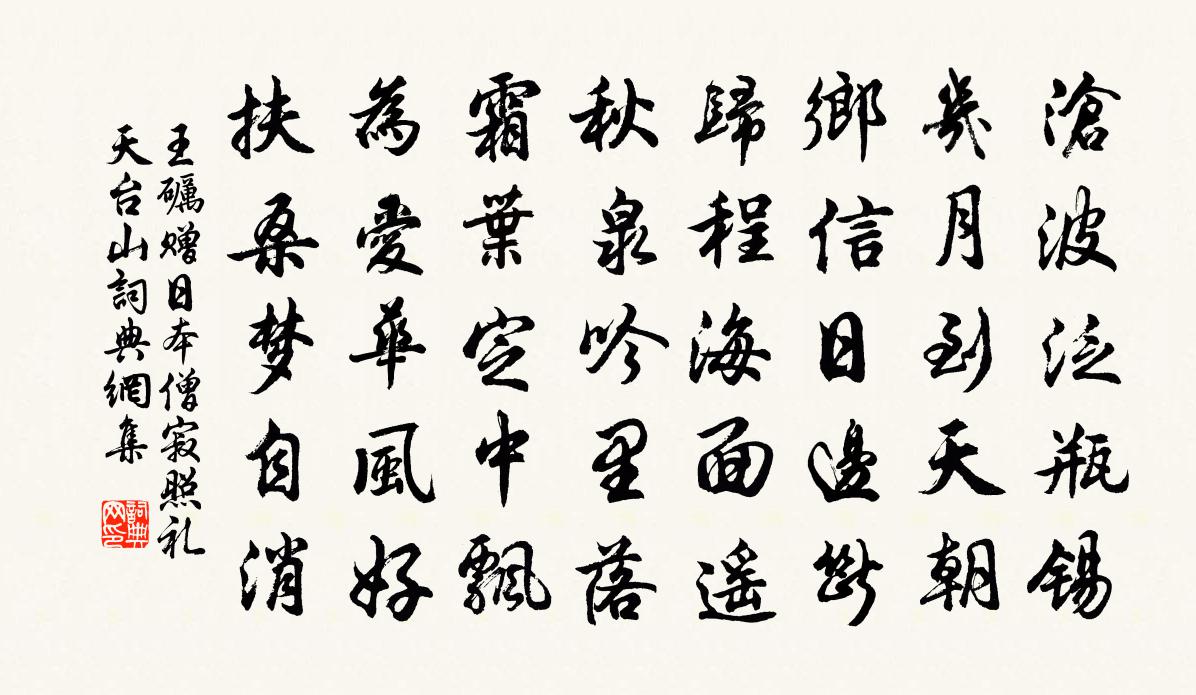 滄波泛瓶錫
幾月到天朝
鄉信日邊斷
歸程海面遥
秋泉吟里落
霜葉定中飄
為愛華風好
扶桑梦自消
王礪贈日本僧寂照礼
天台山詞典網集
詞典網印